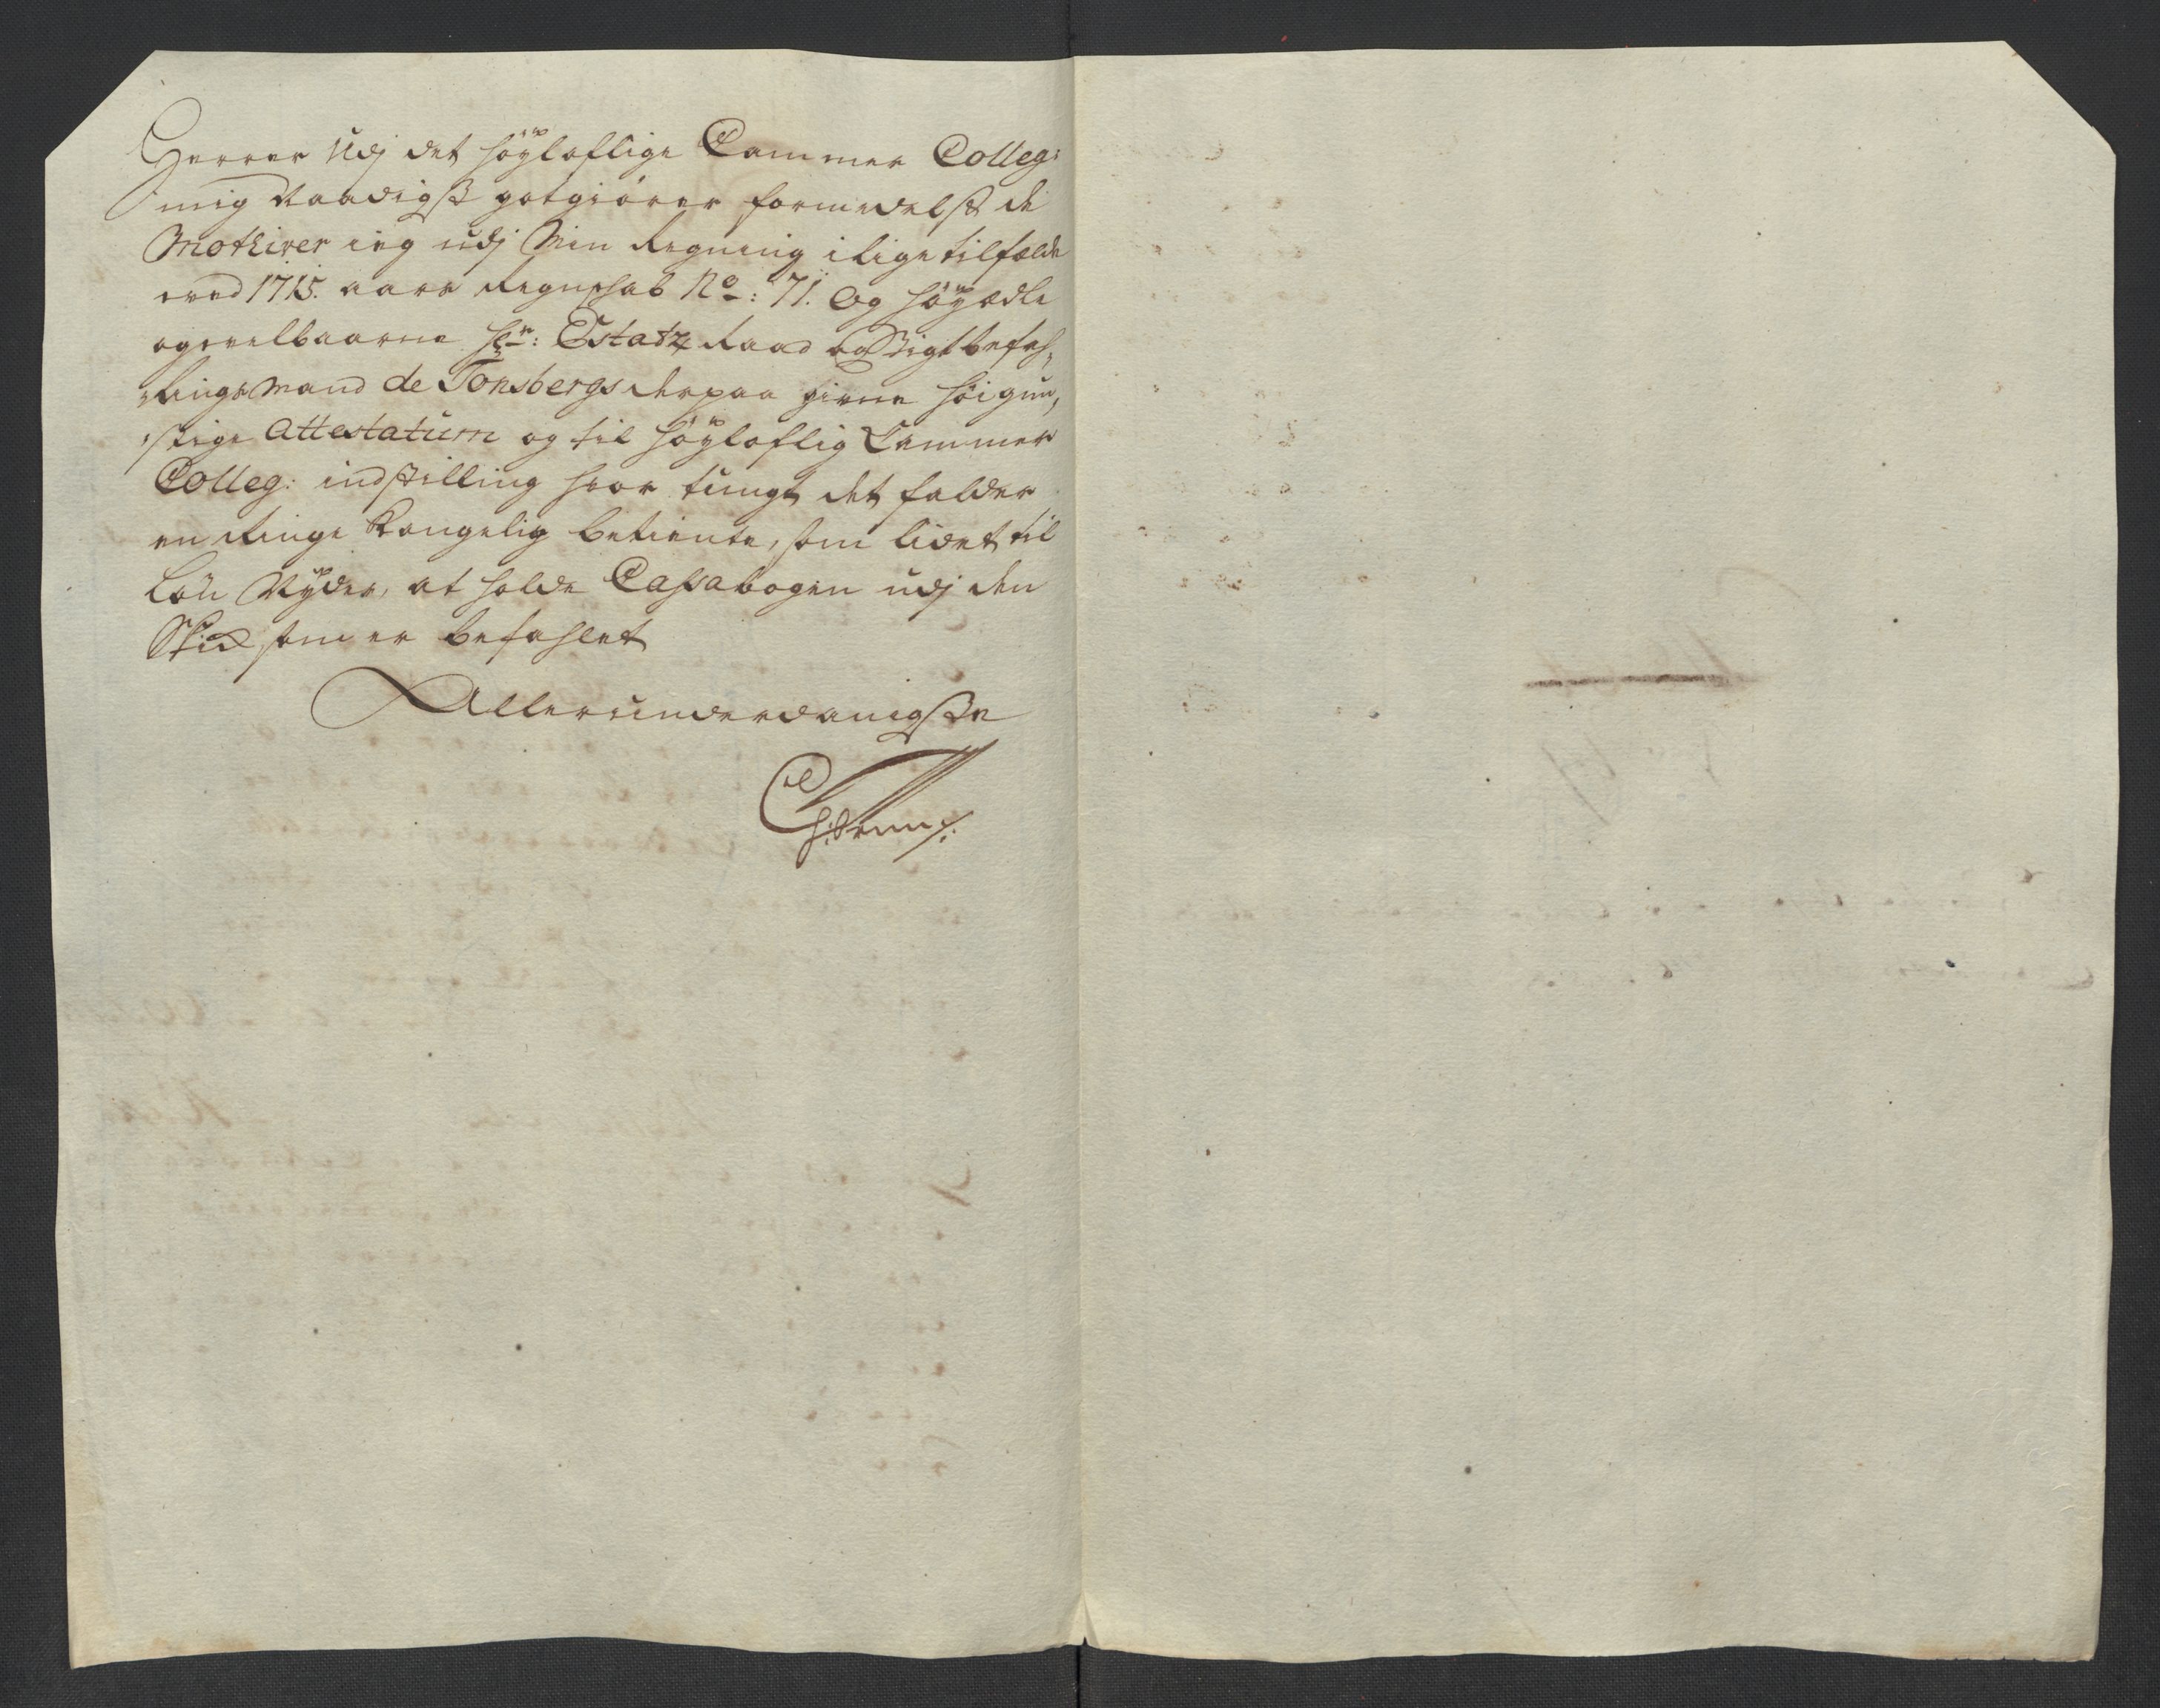 Herrer Udj det höÿloflige Cammer Colleg:
mig Naadigst gotgiörer formedelst de
Mothiver ieg udj Min Regning i lige tilfælde
ved 1715. aars Regnschab No: 71. Og höÿædle
og velbaarne Hr: Estatz Raad og Stigtbefah,
lings Mand de Tonsbergs derpaa givne höigun,
stige Attestatum og til höÿloflig Cammer
Colleg: indstilling hvor tungt det falder
en Ringe Kongelig betiente, som lidet til
Lön Nÿder, at holde Cassabogen udj den
Skick som er befahlet
Allerunderdanigste